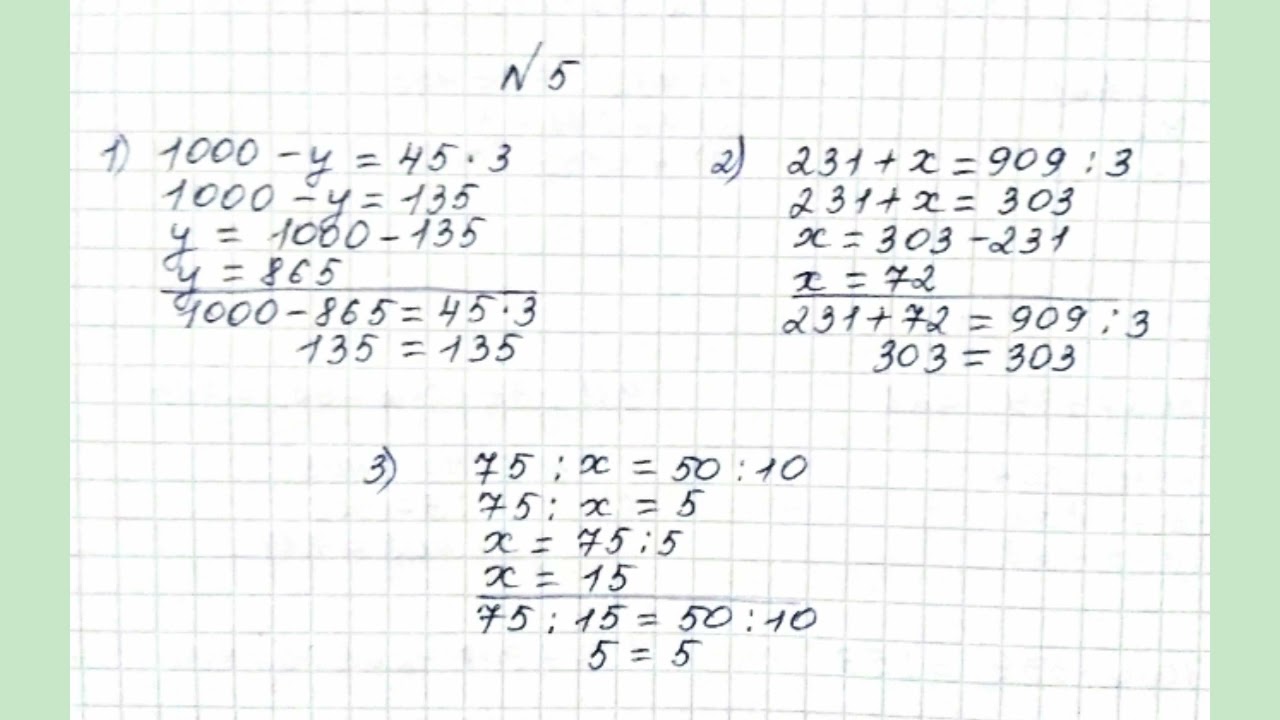 № 5
1) 1000 - y = 45 · 3
1000 - y = 135
y = 1000 - 135
y = 865
1000 - 865 = 45 · 3
135 = 135
2) 231 + x = 909 : 3
231 + x = 303
x = 303 - 231
x = 72
231 + 72 = 909 : 3
303 = 303
3) 75 : x = 50 : 10
75 : x = 5
x = 75 : 5
x = 15
75 : 15 = 50 : 10
5 = 5